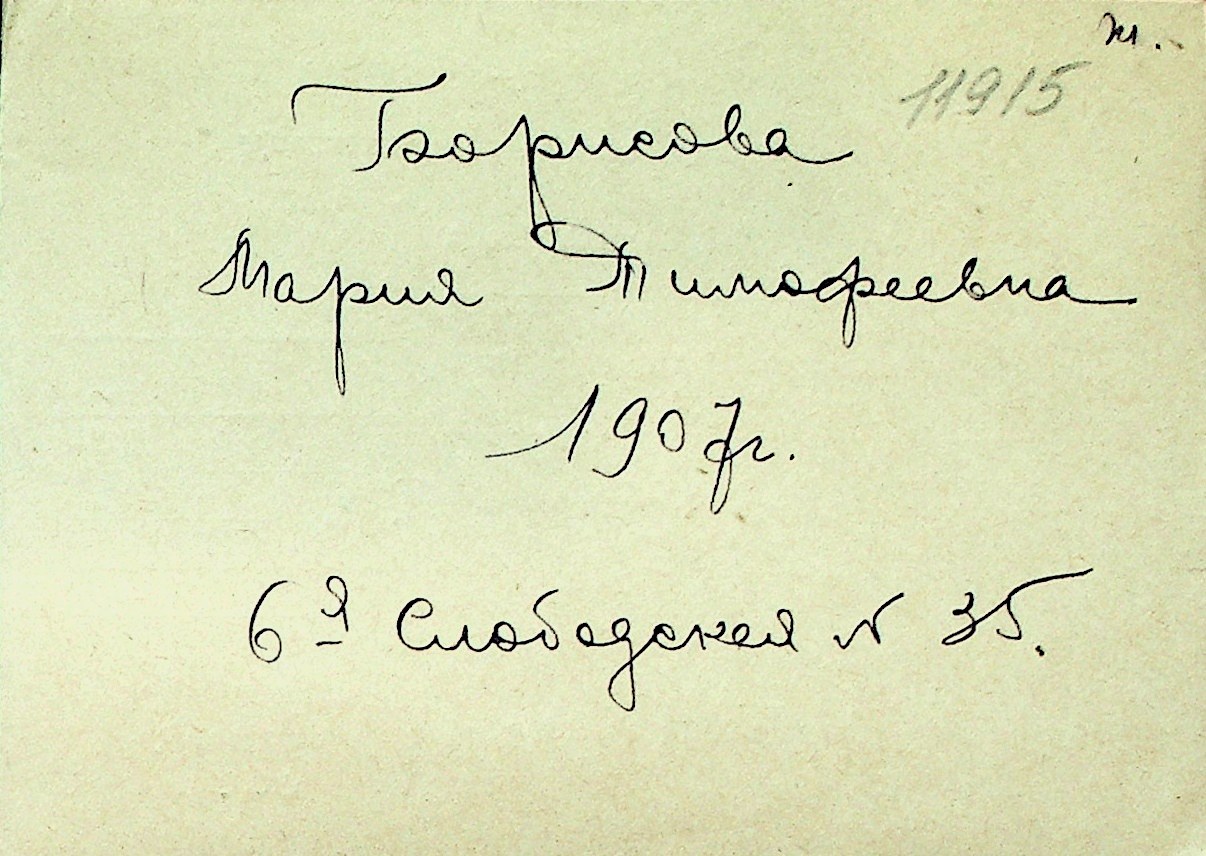 11915
Борисова
Мария Тимофеевна
1907г.
6я Слободская N 35.